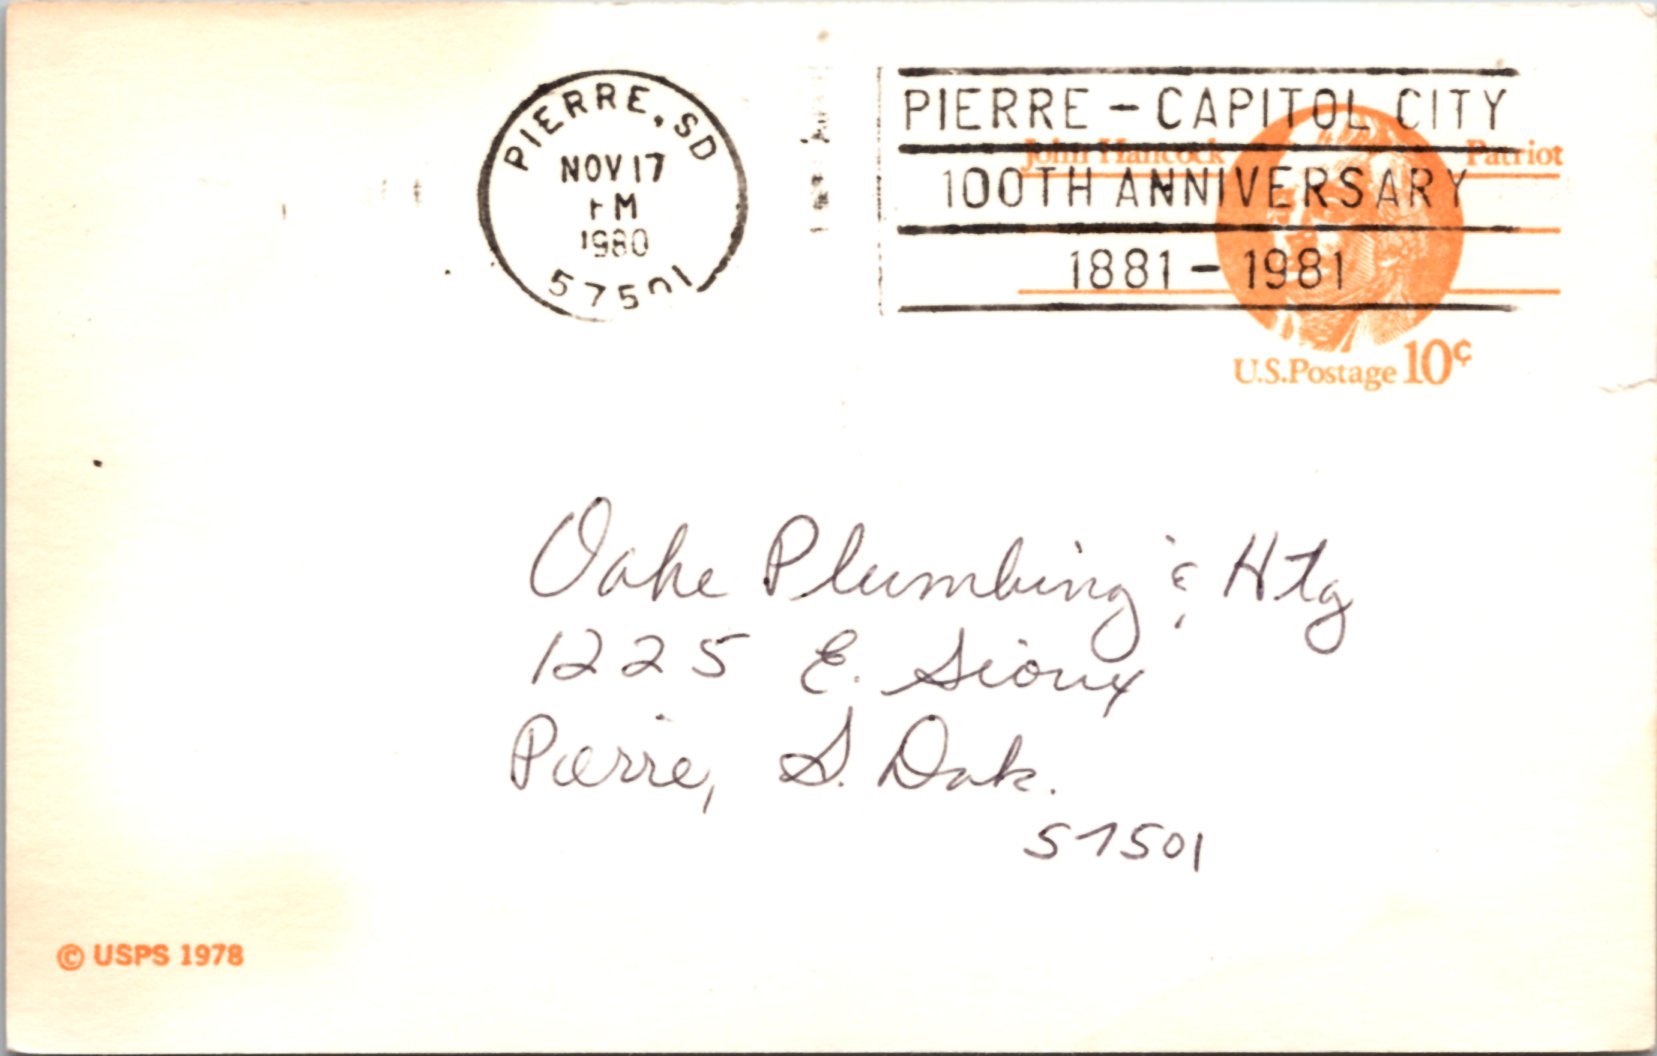 PIERRE, SD
NOV 17
PM
1980
57501
PIERRE - CAPITOL CITY
100TH ANNIVERSARY
1881 - 1981
John Hancock Patriot
U.S. Postage 10¢
Oahe Plumbing & Htg
1225 E. Sioux
Pierre, S. Dak.
57501
© USPS 1978